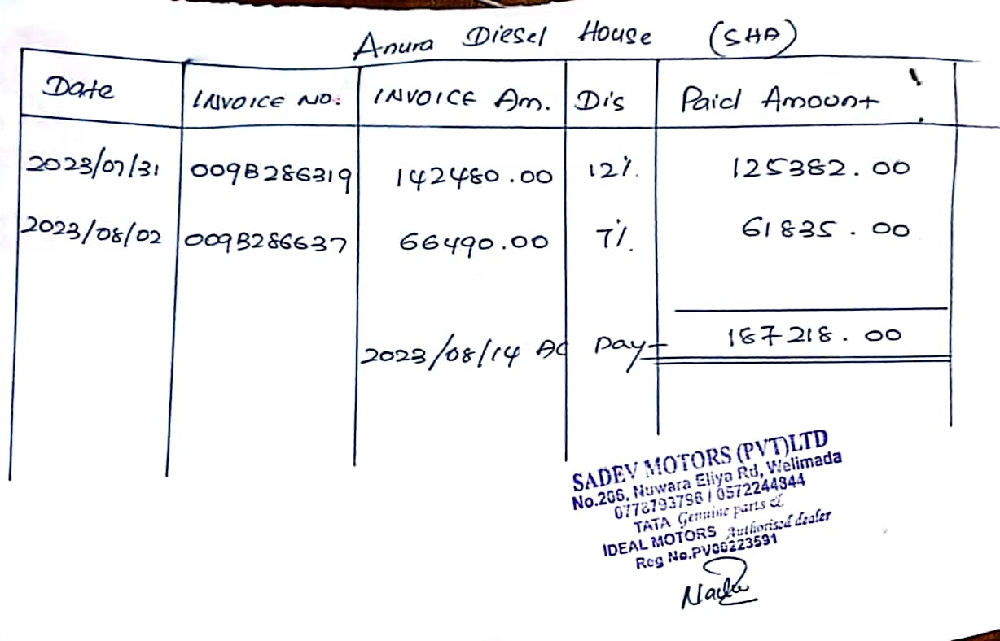 Anura Diesel House (SHA)
Date INVOICE NO: INVOICE Am. Dis Paid Amount
2023/07/31 009B286319 142480.00 12% 125382.00
2023/08/02 009B286637 66490.00 7% 61835.00
2023/08/14 AC Pay 187218.00
SADEV MOTORS (PVT)LTD
No.206, Nuwara Eliya Rd, Welimada
0778793796 / 0572244344
TATA Genuine parts &
IDEAL MOTORS Authorised dealer
Reg No.PV00223591